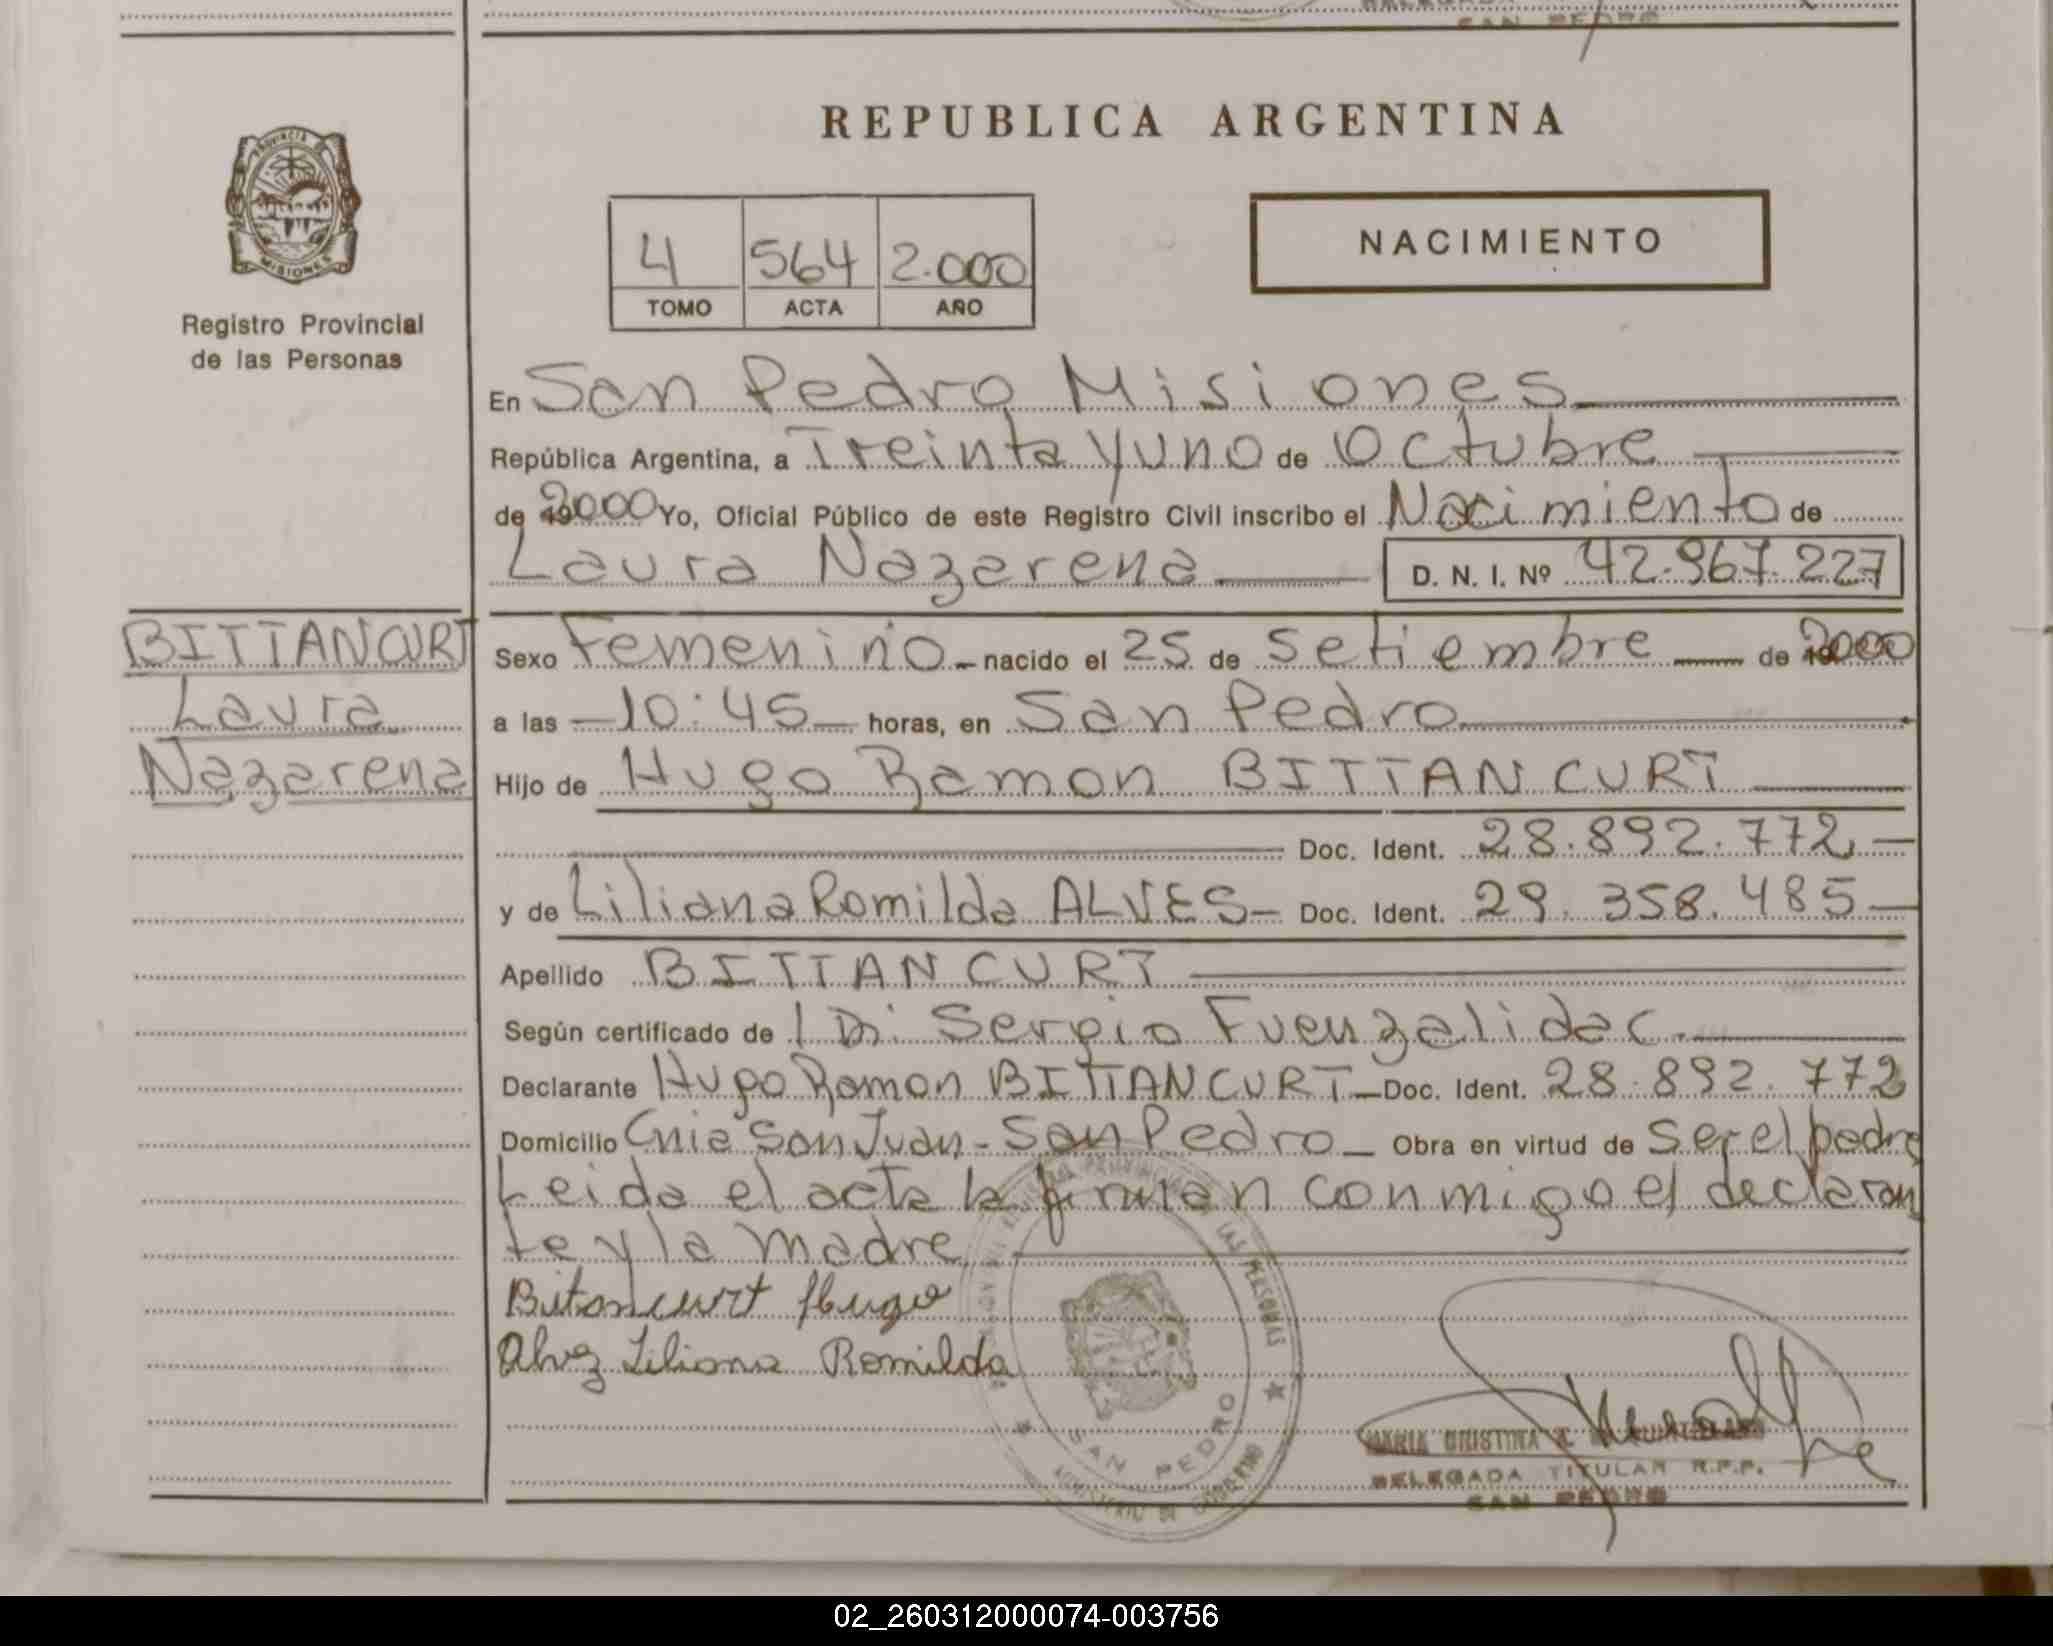 REPUBLICA ARGENTINA
PROVINCIA DE
MISIONES
Registro Provincial
de las Personas
4 564 2.000
TOMO ACTA AÑO
NACIMIENTO
En San Pedro Misiones
República Argentina, a Treinta y uno de Octubre
de 2000 Yo, Oficial Público de este Registro Civil inscribo el Nacimiento de
Laura Nazarena D. N. I. Nº 42.967.227
BITTANCURT
Laura
Nazarena
Sexo Femenino nacido el 25 de Setiembre de 2000
a las 10:45 horas, en San Pedro
Hijo de Hugo Ramon BITTANCURT
Doc. Ident. 28.892.772
y de Liliana Romilda ALVES Doc. Ident. 29.358.485
Apellido BITTANCURT
Según certificado de Sergio Fuenzalida C.
Declarante Hugo Ramon BITTANCURT Doc. Ident. 28.892.772
Domicilio Cnia San Juan - San Pedro Obra en virtud de Ser el padre
Leida el acta la firman conmigo el declaran
te y la madre
Bitancurt Hugo
Alvez Liliana Romilda
SAN PEDRO
MARIA CRISTINA
DELEGADA TITULAR R.P.P.
SAN PEDRO
02_260312000074-003756